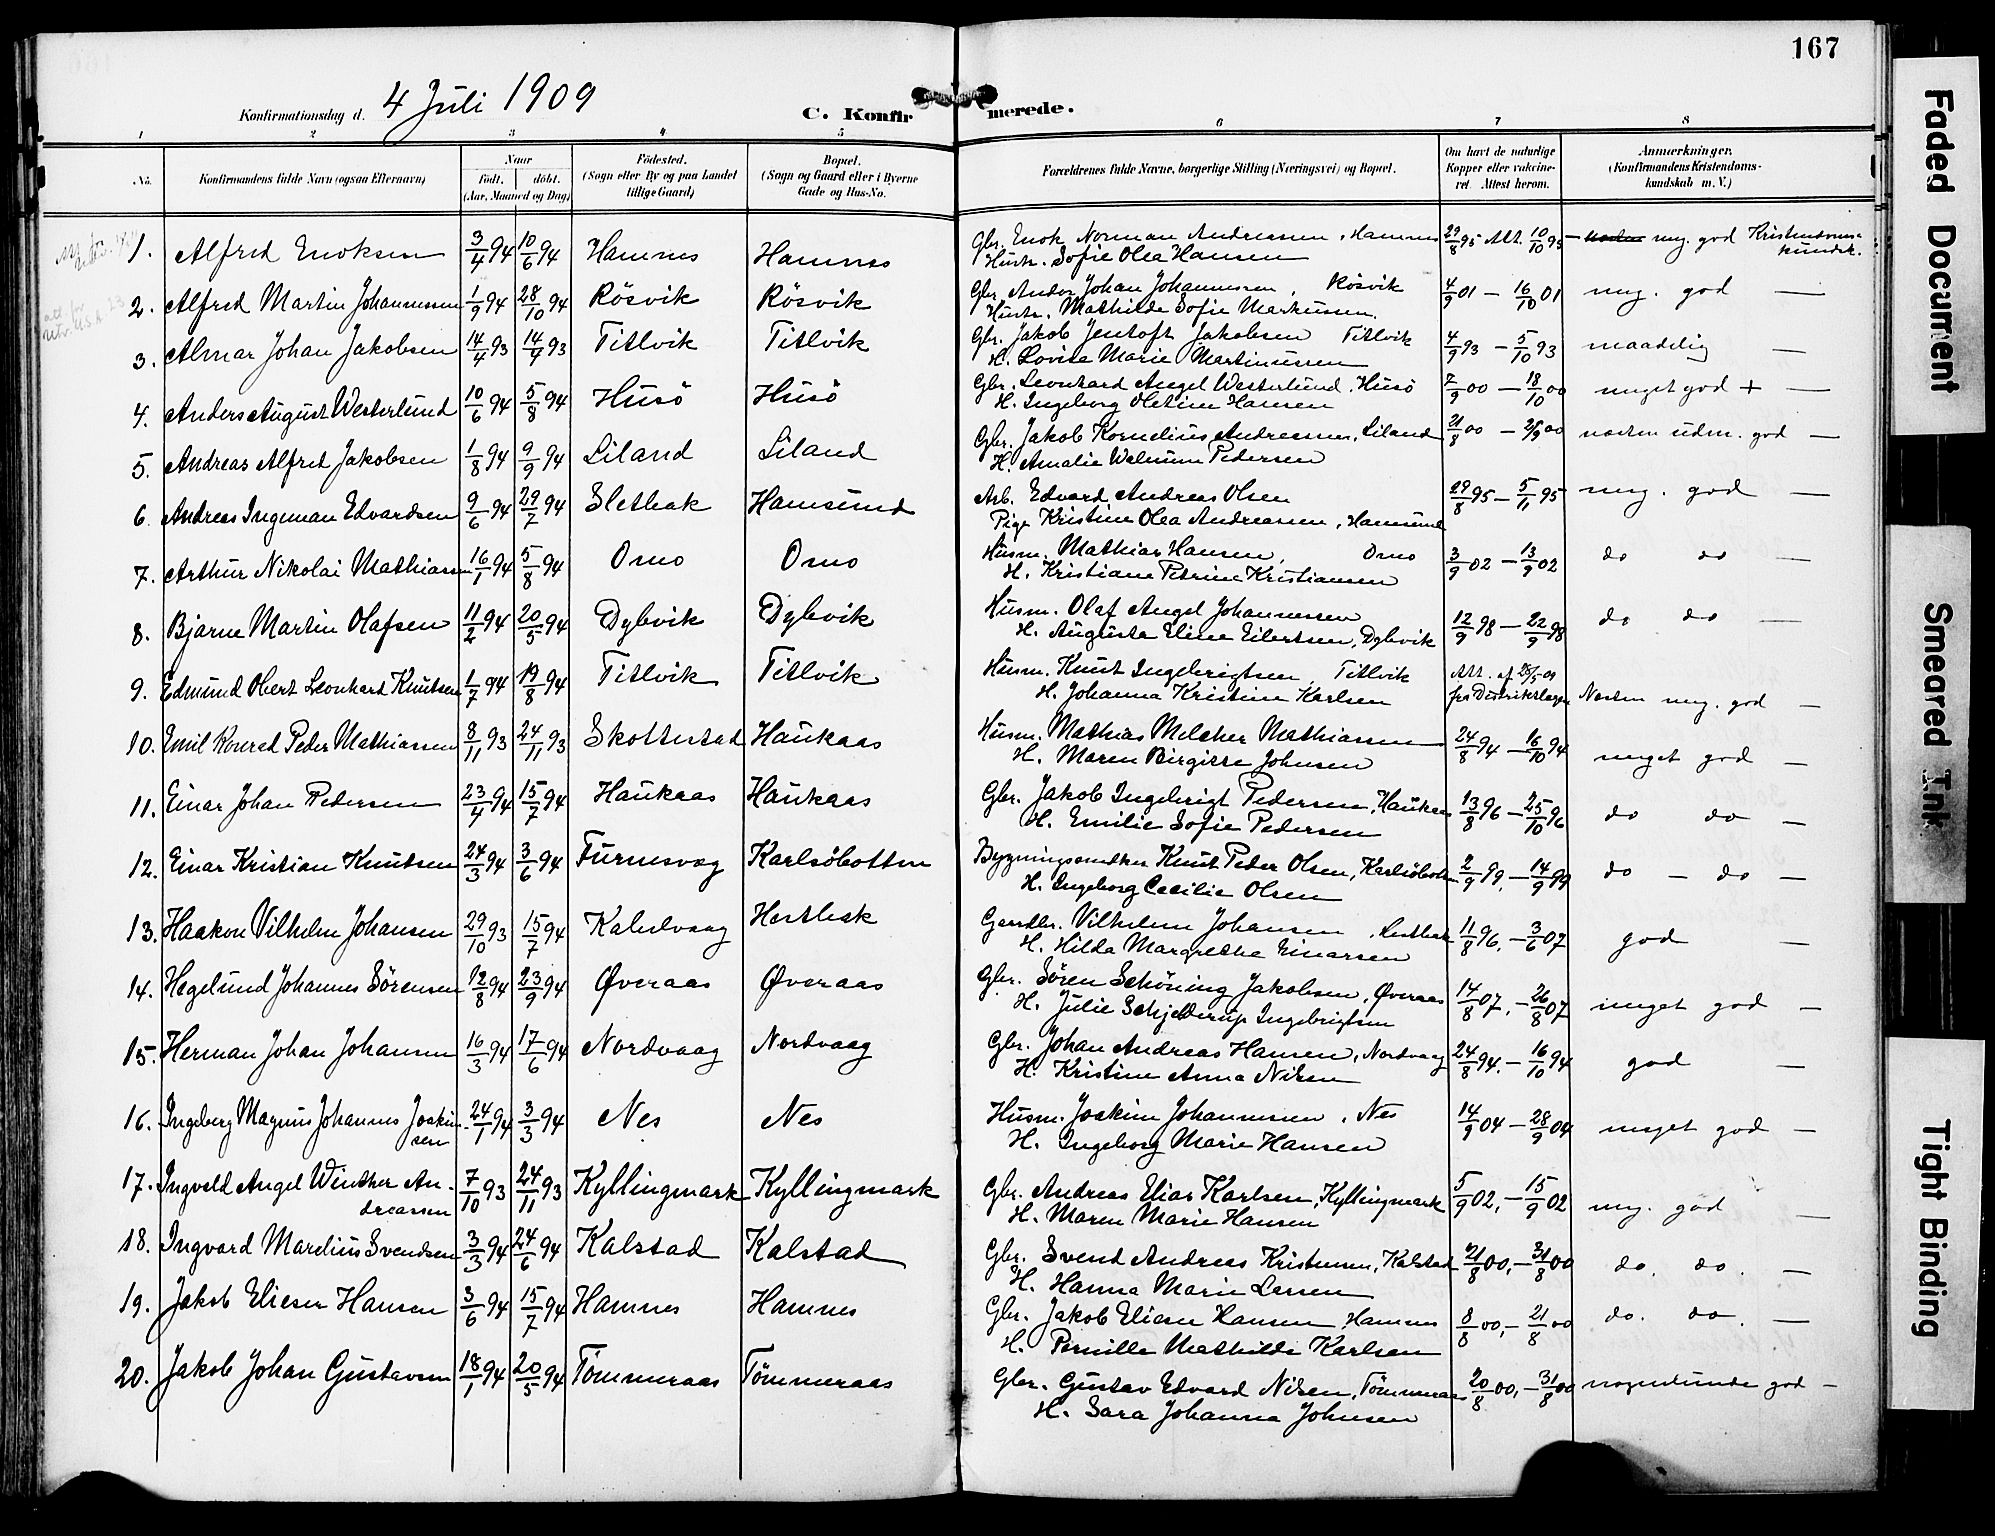 167
Konfirmationsdag d. 4 Juli 1909
C. Konfirmerede.
1 2 3 4 5 6 7 8
No. Konfirmandens fulde Navn (ogsaa Efternavn) Naar Födt. döbt. (Aar, Maaned og Dag) Födested. (Sogn eller By og paa Landet tillige Gaard) Bopæl. (Sogn og Gaard eller i Byerne Gade og Hus-No. Forældrenes fulde Navne, borgerlige Stilling (Næringsvei) og Bopæl. Om havt de naturlige Kopper eller vakcineret. Attest herom. Anmærkninger. (Konfirmandens Kristendomskundskab m. V.)
1. Alfred Enoksen 3/4 94 10/6 94 Hamnes Hamnes Gbr. Enok Norman Andreassen, Hamnes 29/8 95 Att. 10/10 95 – meg. god Kristendoms-
Hustr. Sofie Olea Hansen kundsk.
2. Alfred Martin Johannessen 1/9 94 28/10 94 Rösvik Rösvik Gbr. Andor Johan Johannesen, Rösvik 4/9 01 – 16/10 01 meg. god —
Hustr. Mathilde Sofie Markussen.
3. Almar Johan Jakobsen 14/4 93 14/9 93 Titlvik Titlvik Gbr. Jakob Jentoft Jakobsen Titlvik 4/9 93 – 5/10 93 maadelig —
H. Lovise Marie Martinussen
4. Anders August Westerlund 10/6 94 5/8 94 Husö Husö Gbr. Leonhard Angel Westerlund, Husö 7/9 00 – 18/10 00 meget god + —
H. Ingeborg Oletine Hansen
5. Andreas Alfred Jakobsen 1/8 94 9/9 94 Liland Liland Gbr. Jakob Kornelius Andreassen, Liland 21/8 00 – 2/9 00 næsten udm. god —
H. Amalie Pedersen
6. Andreas Ingeman Edvardsen 9/6 94 29/7 94 Sletbak Hamsund Arb. Edvard Andreas Olsen 29/8 95 – 5/11 95 meg. god —
Pige Kristine Olea Andreassen, Hamsund
7. Arthur Nikolai Mathiassen 16/1 94 5/8 94 Ørno Ørno Husm. Mathias Hansen, Ørno 3/9 02 – 13/9 02 do do —
H. Kristiane Petrine Kristiansen
8. Bjarne Martin Olafsen 11/2 94 20/5 94 Dybvik Dybvik Husm. Olaf Angel Johannessen 12/9 98 – 22/9 98 do do —
H. Augusta Eline Eilertsen, Dybvik
9. Edmund Obert Leonhard Knutsen 1/7 94 19/8 94 Titlvik Titlvik Husm. Knut Ingebrigtsen, Titlvik Att. af 28/5 09
H. Johanna Kristine Karlsen fra Distriktslægen Næsten meg. god —
10. Emil Konrad Peder Mathiassen 8/11 93 24/11 93 Skottestad Haukaas Husm. Mathias Melcher Mathiassen 24/8 94 – 16/10 94 meget god —
H. Maren Birgitte Johnsen
11. Einar Johan Pedersen 23/4 94 15/7 94 Haukaas Haukaas Gbr. Jakob Ingebrigt Pedersen, Haukaas 13/8 96 – 25/10 96 do do —
H. Emilie Sofie Pedersen
12. Einar Kristian Knutsen 24/3 94 3/6 94 Furnesvag Karlsöbotten Bygningssnedker Knut Peder Olsen, Karlsöbotn 2/9 99, – 14/9 99 do – do —
H. Ingeborg Cecilie Olsen
13. Haakon Vilhelm Johansen 29/10 93 15/7 94 Kalvdvaag Hestbak Vilhelm Johansen 11/8 96, – 3/6 07 god —
H. Hilda Margrethe Einarsen
14. Hegelund Johannes Sörensen 12/8 94 23/9 94 Øveraas Øveraas Gbr. Sören Schöning Jakobsen, Øveraas 14/8 07, – 26/8 07 meget god —
H. Julie Schjelderup Ingebrigtsen
15. Herman Johan Johansen 16/3 94 17/6 94 Nordvaag Nordvaag Gbr. Johan Andreas Hansen, Nordvaag 24/8 94. – 16/10 94 god —
H. Kristine Anna Nilsen
16. Ingeberg Magnus Johannes Joakim- 24/1 94 3/3 94 Nes Nes Husm. Joakim Johannessen, Nes 14/9 04 – 28/9 04 meget god —
sen H. Ingeborg Marie Hansen
17. Ingvald Angel Winther An- 7/10 93 24/11 93 Kyllingmark Kyllingmark Gbr. Andreas Elias Karlsen, Kyllingmark 5/9 02, – 15/9 02 meg. god —
dreassen H. Maren Marie Hansen
18. Ingvard Marelius Svendsen 3/3 94 24/6 94 Kalstad Kalstad Gbr. Svend Andreas Kristensen, Kalstad 21/8 00, – 31/8 00 do. do. —
H. Hanna Marie Larsen
19. Jakob Elieser Hansen 3/6 94 15/7 94 Hamnes Hamnes Gbr. Jakob Eliesen Hansen Hamnes 8/8 00, – 21/8 00 do. do. —
H. Pernille Mathilde Karlsen
20. Jakob Johan Gustavsen 18/1 94 20/5 94 Tömmeraas Tömmeraas Gbr. Gustav Edvard Nilsen, Tömmeraas 20/8 00, – 31/8 00 nogenlunde god —
H. Sara Johanna Johnsen
Faded Document
Smeared Ink
Tight Binding